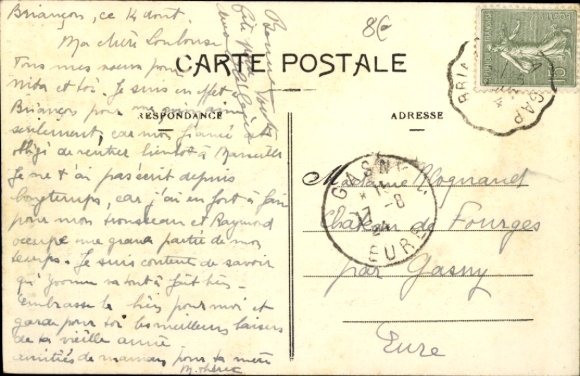 Briançon, ce 14 août.
Ma chère Loulouse
Tous mes vœux pour
et toi. Je suis en effet
Briançon pour
seulement, car mon fiancé est
obligé de rentrer bientôt à Marseille
Je ne t'ai pas écrit depuis
longtemps, car j'ai en fort à faire
pour mon trousseau et Raymond
occupe une grande partie de mon
temps. Je suis contente de savoir
qu'Yvonne va tout à fait bien
embrasse la bien pour moi et
garde pour toi les meilleurs baisers
de ta vieille amie
amitiés de maman, pour ta mère
M. Thérèse
Bonne
8€
CARTE POSTALE
RRESPONDANCE
ADRESSE
BRIA
GAP
GASNY
17 -8
24
EURE
Madame Mognand
Château de Fourges
par Gasny
Eure